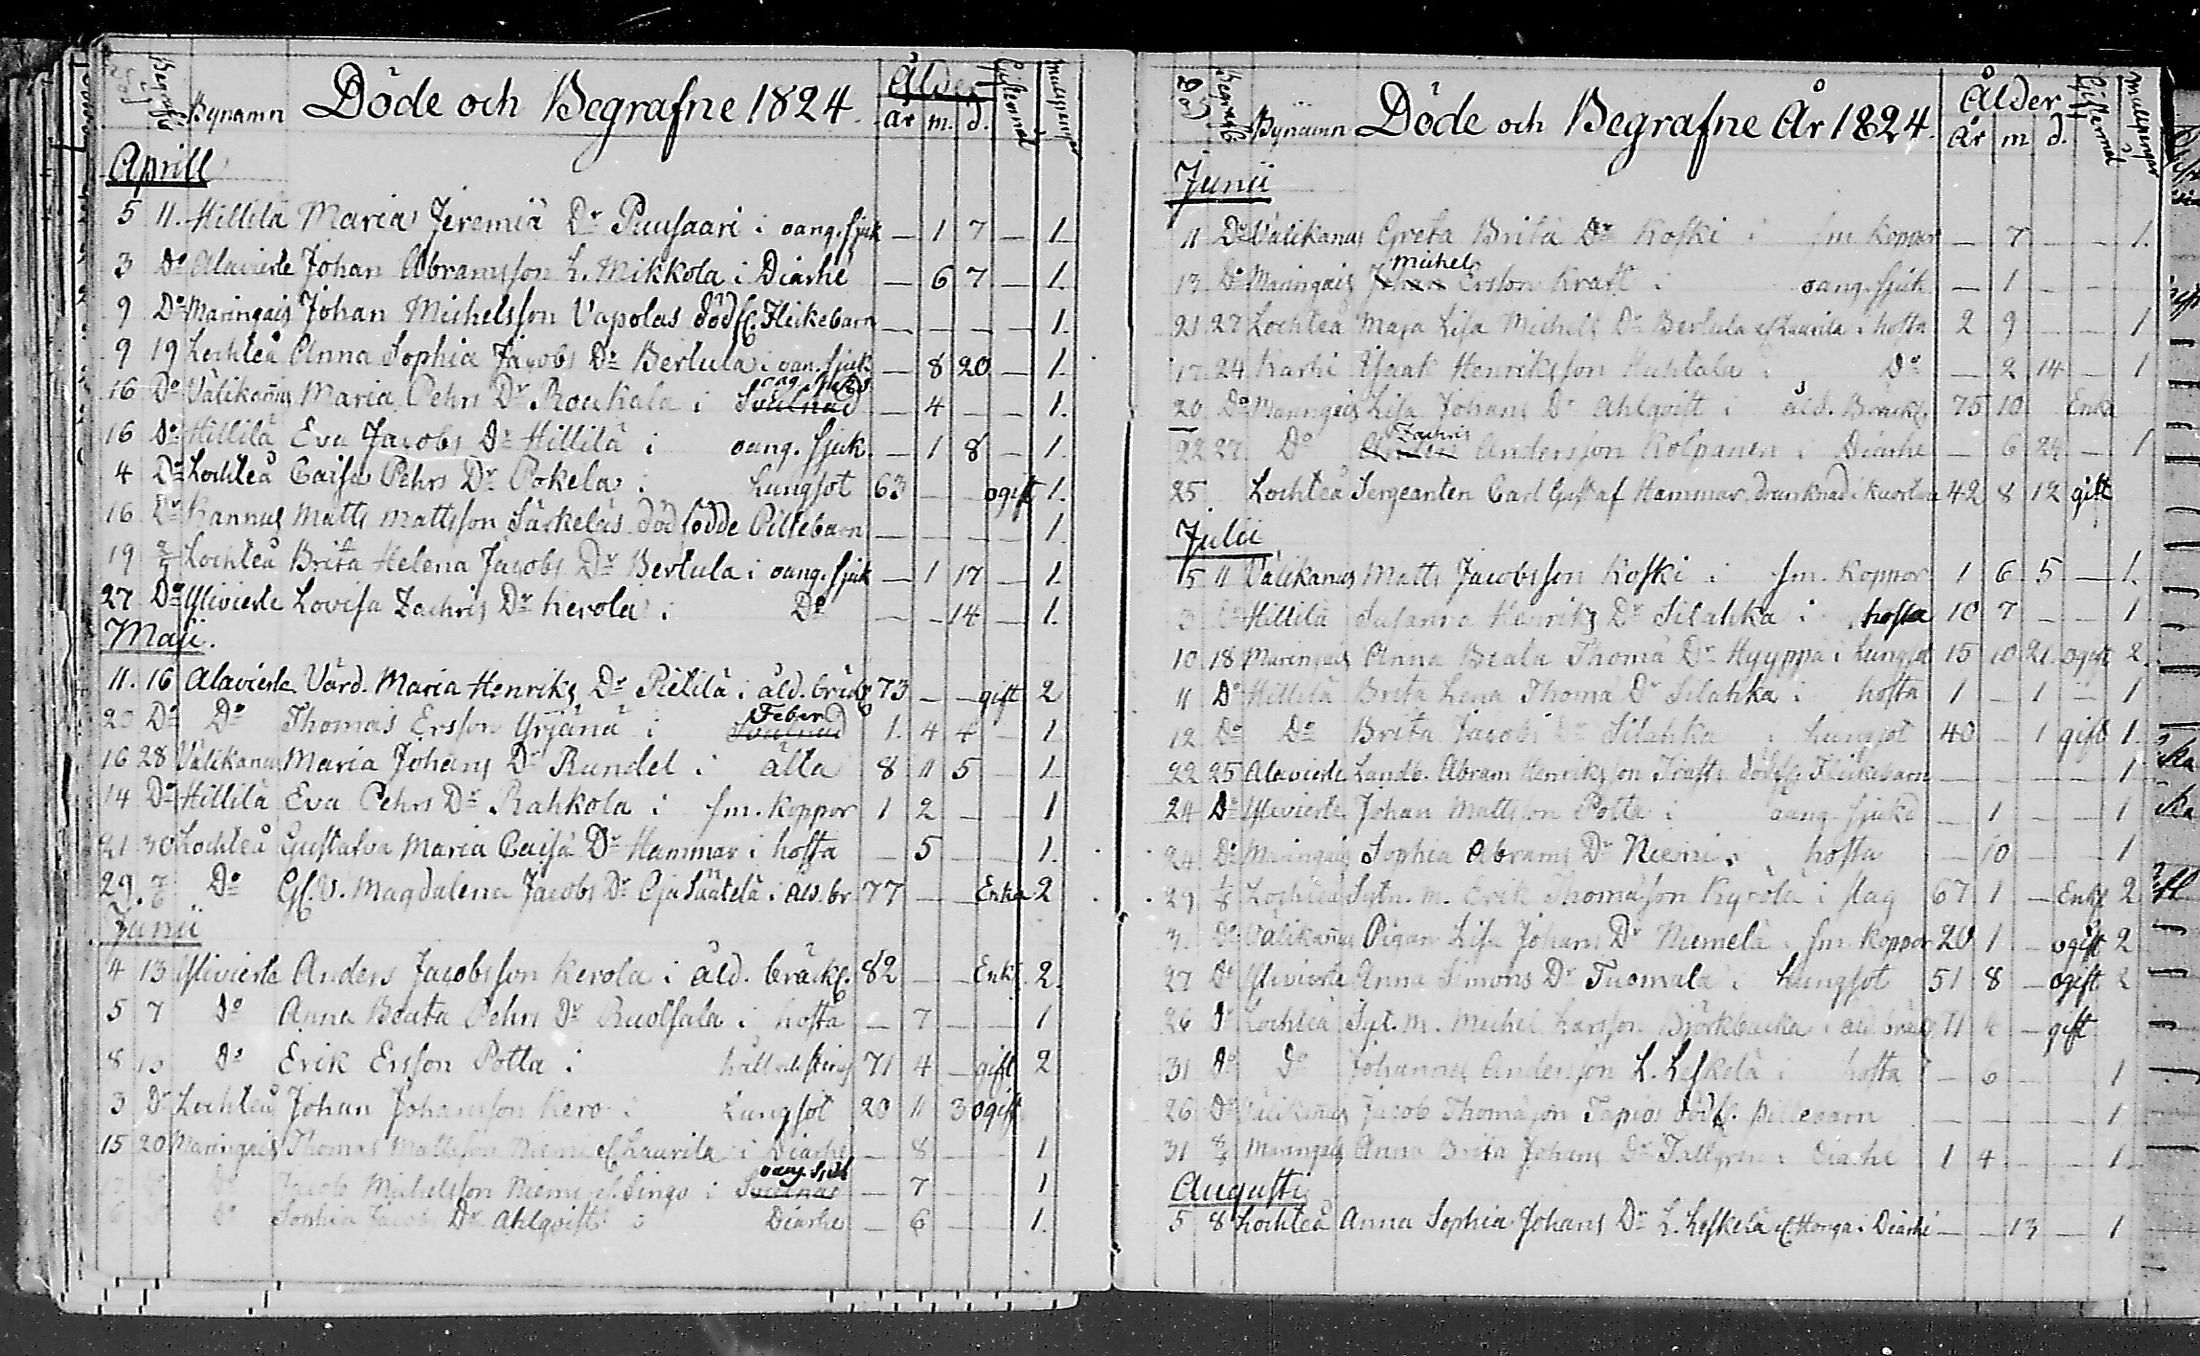 Begrafne Bynamn Döde och Begrafne 1824. Ålder år m. d. Giftermål
Aprill
5 11. Hillilä Maria Jeremiä Dr Puusaari i oang. sjuk — 1 7 — 1.
3 Do Alavierte Johan Abramsson L. Mikkola i Diarhé — 6 7 — 1.
9 Do Maringais Johan Michelsson Vapolas dödf. Flickebarn — — — — 1.
9 19 Lochteå Anna Sophia Jacobs Dr Bertula i oan. sjuk — 8 20 — 1.
16 Do Välikañus Maria Pehrs Dr Roukala i Svulnad oang. sjukd — 4 — — 1.
16 Do Hillilä Eva Jacobs Dr Hillilä i oang. sjuk. — 1 8 — 1.
4 Do Lochteå Caisa Pehrs Dr Pokela i Lungsot 63 — — ogift 1.
16 Do Kannus Matts Mattsson Särkeläs död födde Piltebarn — — — — 1.
19 2/5 Lochteå Brita Helena Jacobs Dr Bertula i oang. sjuk — 1 17 — 1.
27 Do Ylivierte Lovisa Zachris Dr Kerola i Do — — 14 — 1.
Maji.
11. 16 Alavierte Värd. Maria Henriks Dr Pietilä i åld. bräckl 73 — — gift 2
20 Do Do Thomas Ersson Yrjänä i Svulnad Feber 1. 4 4 — 1.
16 28 Välikanus Maria Johans Dr Rundel i älta 8 11 5 — 1.
14 Do Hillilä Eva Pehrs Dr Rahkola i sm. koppor 1 2 — — 1
21 30 Lochteå Gustafva Maria Caisa Dr Hammar i hosta — 5 — — 1.
29. 7/6 Do Gl. V. Magdalena Jacobs Dr Eja Säntelä i åld. br 77 — — Enka 2
Junii
4 13 Ylivierte Anders Jacobsson Kerola i åld. bräckl. 82 — — Enkl. 2.
5 7 Do Anna Beata Pehrs Dr Ruotsala i hosta — 7 — — 1
8 Do Erik Ersson Potta i håll och sting 71 4 — gift 2
3 Do Lochteå Johan Johansson Kero i Lungsot 20 11 3 ogift
15 20 Maringais Thomas Mattsson Niemi el. Laurila i Diarhe — 8 — — 1
Do Jacob Michelsson Niemi el. Singo i Svulnad oang. sjuk — 7 — — 1
6 Do Sophia Jacobs Dr Ahlqvist i Diarhe — 6 — — 1.
Begrafne Bynamn Döde och Begrafne År 1824. Ålder År m d. Giftermål
Junii
11 Do Välikanus Greta Brita Dr Koski i sm. koppor — 7 — — 1.
13 Do Maringais Johan Michel Ersson Kraft i oang. sjuk — 1 — —
21 27 Lochteå Maja Lisa Michels Dr Bertula el Laurila i hosta 2 9 — — 1
17 24 Karhi Isaak Henriksson Huhtala i Do — 2 14 — 1
20 Do Maringais Lisa Johans Dr Ahlqvist i åld. Bräckl. 75 10 Enka
22 27 Do Anders Zachris Andersson Kolpanen i Diarhe — 6 24 — 1
25 Lochteå Sergeanten Carl Gustaf Hammar, drunknad i 42 8 12 gift
Julii
5 11 Välikanus Matts Jacobsson Koski i sm. koppor 1 6 5 — 1.
3 Do Hillilä Susanna Henriks Dr Silahka i hosta 10 7 — — 1
10 18 Maringais Anna Beata Thomä Dr Hyyppä i Lungsot 15 10 21. ogift 2.
11 Do Hillilä Brita Lena Thomä Dr Silahka i hosta 1 — 1 — 1
12 Do Do Brita Jacobs Dr Silahka i Lungsot 40 — 1 gift 1.
22 25 Alavierte Landb. Abram Henriksson dödf. Flickebarn — — — — 1
24 Do Ylivierte Johan Mattsson Potta i oang. sjukd — 1 — — 1
24. Do Maringais Sophia Abrams Dr Niemi i hosta — 10 — — 1
29 1/8 Lochteå Sytn. m. Erik Thomasson Kyrölä i slag 67 1 — Enkl 2
3. Do Välikañus Pigan Lisa Johans Dr Niemelä i sm. koppor 20 1 — ogift 2
27 Do Yliviérte Anna Simons Dr Tuomala i Lungsot 51 8 — ogift 2
26 Do Lochteå Syt. M. Michel Larsson Björkbacka i åld. bräckl 71 — gift
31 Do Do Johannes Andersson L. Leskelä i hosta — 6 — — 1
26 Do Välikañus Jacob Thomasson Tapios dödf. Piltebarn — — — — 1
31 8/8 Maringais Anna Brita Johans Dr Tallgren i Diarhé 1 4 — — 1
Augusti
5 8 Lochteå Anna Sophia Johans Dr L. Leskelä el. Honga i Diarhé — — 13 — 1